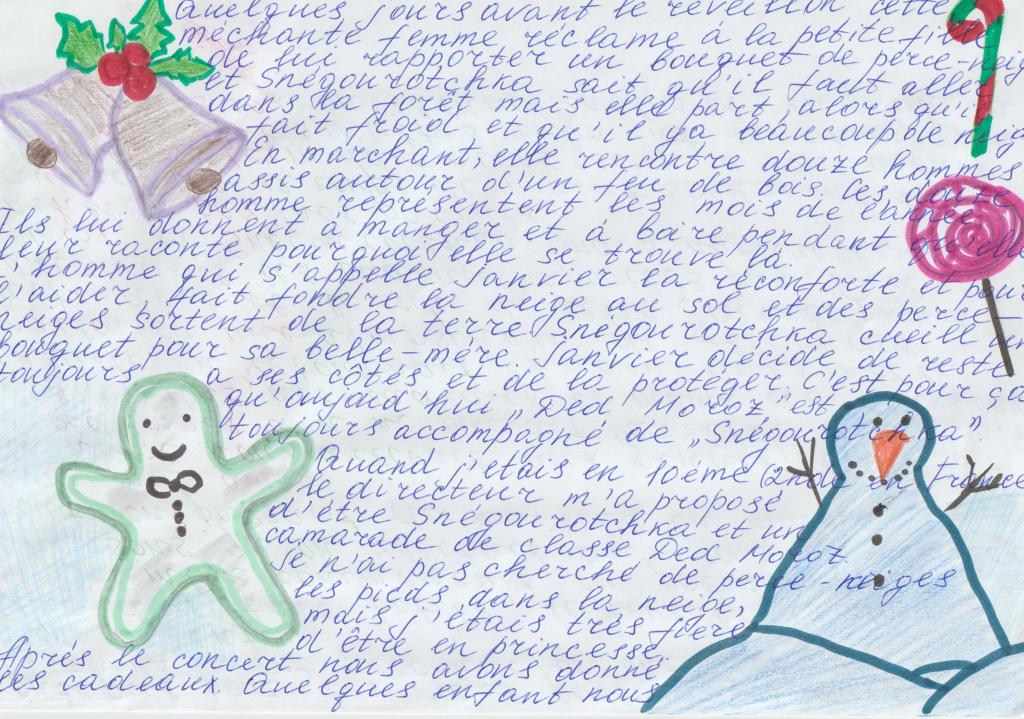 Quelques jours avant le réveillon cette
méchante femme réclame à la petite fille
de lui rapporter un bouquet de perce-neig
et Snégourotchka sait qu'il faut aller
dans la forêt mais elle part alors qu'i
fait froid et qu'il ya beaucoup de neig
En marchant, elle rencontre douze hommes
assis autour d'un feu de bois. Ces douze
homme représentent les mois de l'année.
Ils lui donnent à manger et à boire pendant qu'elle
leur raconte pourquoi elle se trouve là.
L'homme qui s'appelle Janvier la réconforte et pour
l'aider, fait fondre la neige au sol et des perce-
neiges sortent de la terre. Snégourotchka cueill un
bouquet pour sa belle-mére. Janvier décide de reste
toujours a ses côtés et de la protéger. C'est pour ça
qu'aujord'hui „Ded Moroz" est
toujours accompagné de „Snégourotchka"
Quand j'étais en 10éme (2nde France
le directeur m'a proposé
d'être Snégourotchka et un
camarade de classe Ded Moroz
Je n'ai pas cherché de perce-neiges
les pieds dans la neige,
mais j'étais trés fiére
d'être en princesse.
Aprés le concert nous avons donné
les cadeaux. Quelques enfant nous